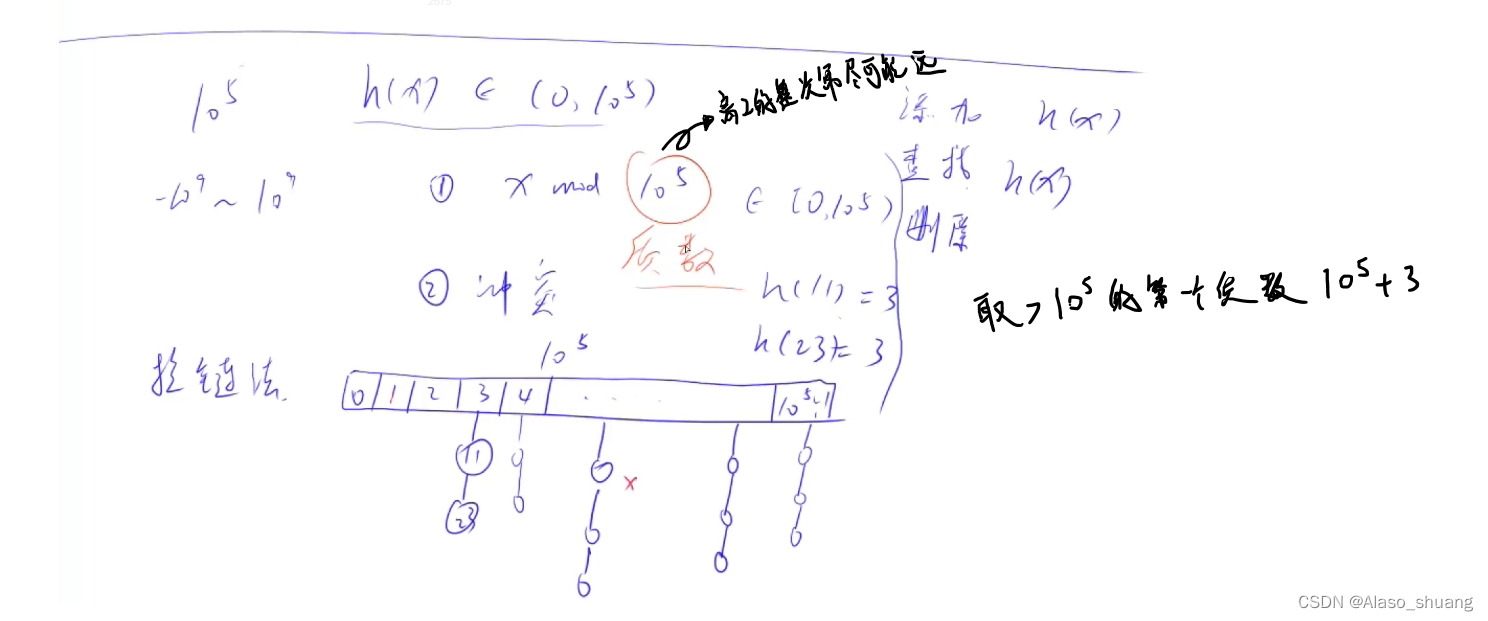 10⁵
h(x) ∈ (0, 10⁵)
离2的整次幂尽可能远
添加 h(x)
-10⁹ ~ 10⁹
① x mod 10⁵ ∈ [0, 10⁵)
查找 h(x)
删除
质数
② 冲突
h(11) = 3
h(23) = 3
取 > 10⁵ 的第一个质数 10⁵+3
拉链法
10⁵
0 1 2 3 4 ... 10⁵-1
11
23
x
CSDN @Alaso_shuang